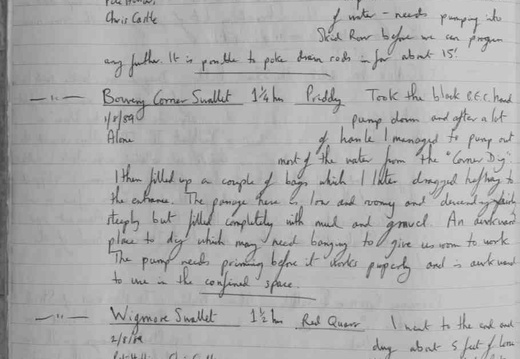 Chris Castle of water - needs pumping into
Skid Row before we can progress
any further. It is possible to poke drain rods in for about 15'.
—"— Bowery Corner Swallet 1¼ hrs Priddy Took the black B.E.C. hand
1/8/89 pump down and after a lot
Alone of hassle I managed to pump out
most of the water from the "Corner Dig".
I then filled up a couple of bags which I later dragged halfway to
the entrance. The passage here is low and roomy and descending fairly
steeply but filled completely with mud and gravel. An awkward
place to dig which may need banging to give us room to work.
The pump needs priming before it works properly and is awkward
to use in the confined space.
—"— Wigmore Swallet 1½ hrs Red Quar I went to the end and
2/8/89 dug about 5 feet of
Chris Castle